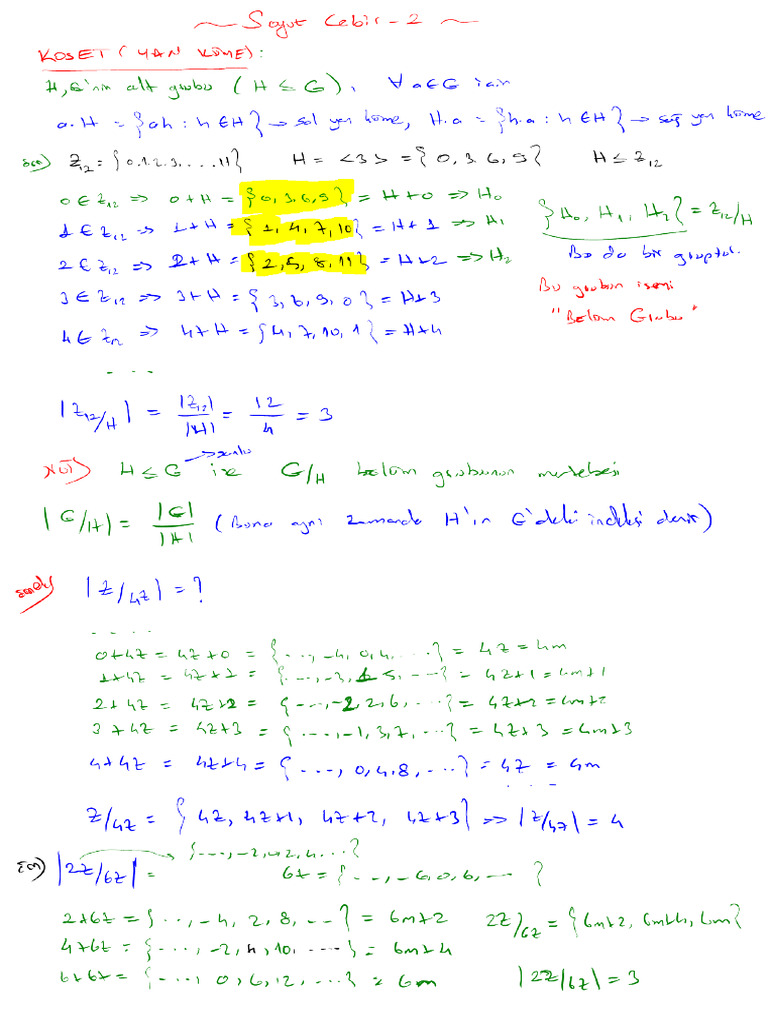 ~ Soyut Cebir - 2 ~
KOSET (YAN KÜME):
H, G'nin alt grubu (H ≤ G), ∀a∈G için
a.H = {ah : h∈H} → sol yan küme, H.a = {h.a : h∈H} → sağ yan küme
Z₁₂ = {0,1,2,3,....11} H = <3> = {0,3,6,9} H ≤ Z₁₂
0 ∈ Z₁₂ ⇒ 0+H = {0,3,6,9} = H+0 ⇒ H₀
1 ∈ Z₁₂ ⇒ 1+H = {1,4,7,10} = H+1 ⇒ H₁
2 ∈ Z₁₂ ⇒ 2+H = {2,5,8,11} = H+2 ⇒ H₂
{H₀, H₁, H₂} = Z₁₂/H
Bu da bir gruptur.
Bu grubun ismi
"Bölüm Grubu"
3 ∈ Z₁₂ ⇒ 3+H = {3,6,9,0} = H+3
4 ∈ Z₁₂ ⇒ 4+H = {4,7,10,1} = H+4
....
|Z₁₂/H| = |Z₁₂|/|H| = 12/4 = 3
→ sonlu
NOT) H ≤ G ise G/H bölüm grubunun mertebesi
|G/H| = |G|/|H| (Buna aynı zamanda H'ın G'deki indeksi denir)
örnek) |Z/4Z| = ?
.....
0+4Z = 4Z+0 = {...,-4,0,4,...} = 4Z = 4m
1+4Z = 4Z+1 = {...,-3,1,5,...} = 4Z+1 = 4m+1
2+4Z = 4Z+2 = {...,-2,2,6,...} = 4Z+2 = 4m+2
3+4Z = 4Z+3 = {...,-1,3,7,...} = 4Z+3 = 4m+3
4+4Z = 4Z+4 = {...,0,4,8,...} = 4Z = 4m
....
Z/4Z = {4Z, 4Z+1, 4Z+2, 4Z+3} ⇒ |Z/4Z| = 4
{...,-2,0,2,4...}
|2Z/6Z| = 6Z = {...,-6,0,6,...}
2+6Z = {...,-4,2,8,...} = 6m+2
4+6Z = {...,-2,4,10,...} = 6m+4
6+6Z = {...,0,6,12,...} = 6m
2Z/6Z = {6m+2, 6m+4, 6m}
|2Z/6Z| = 3